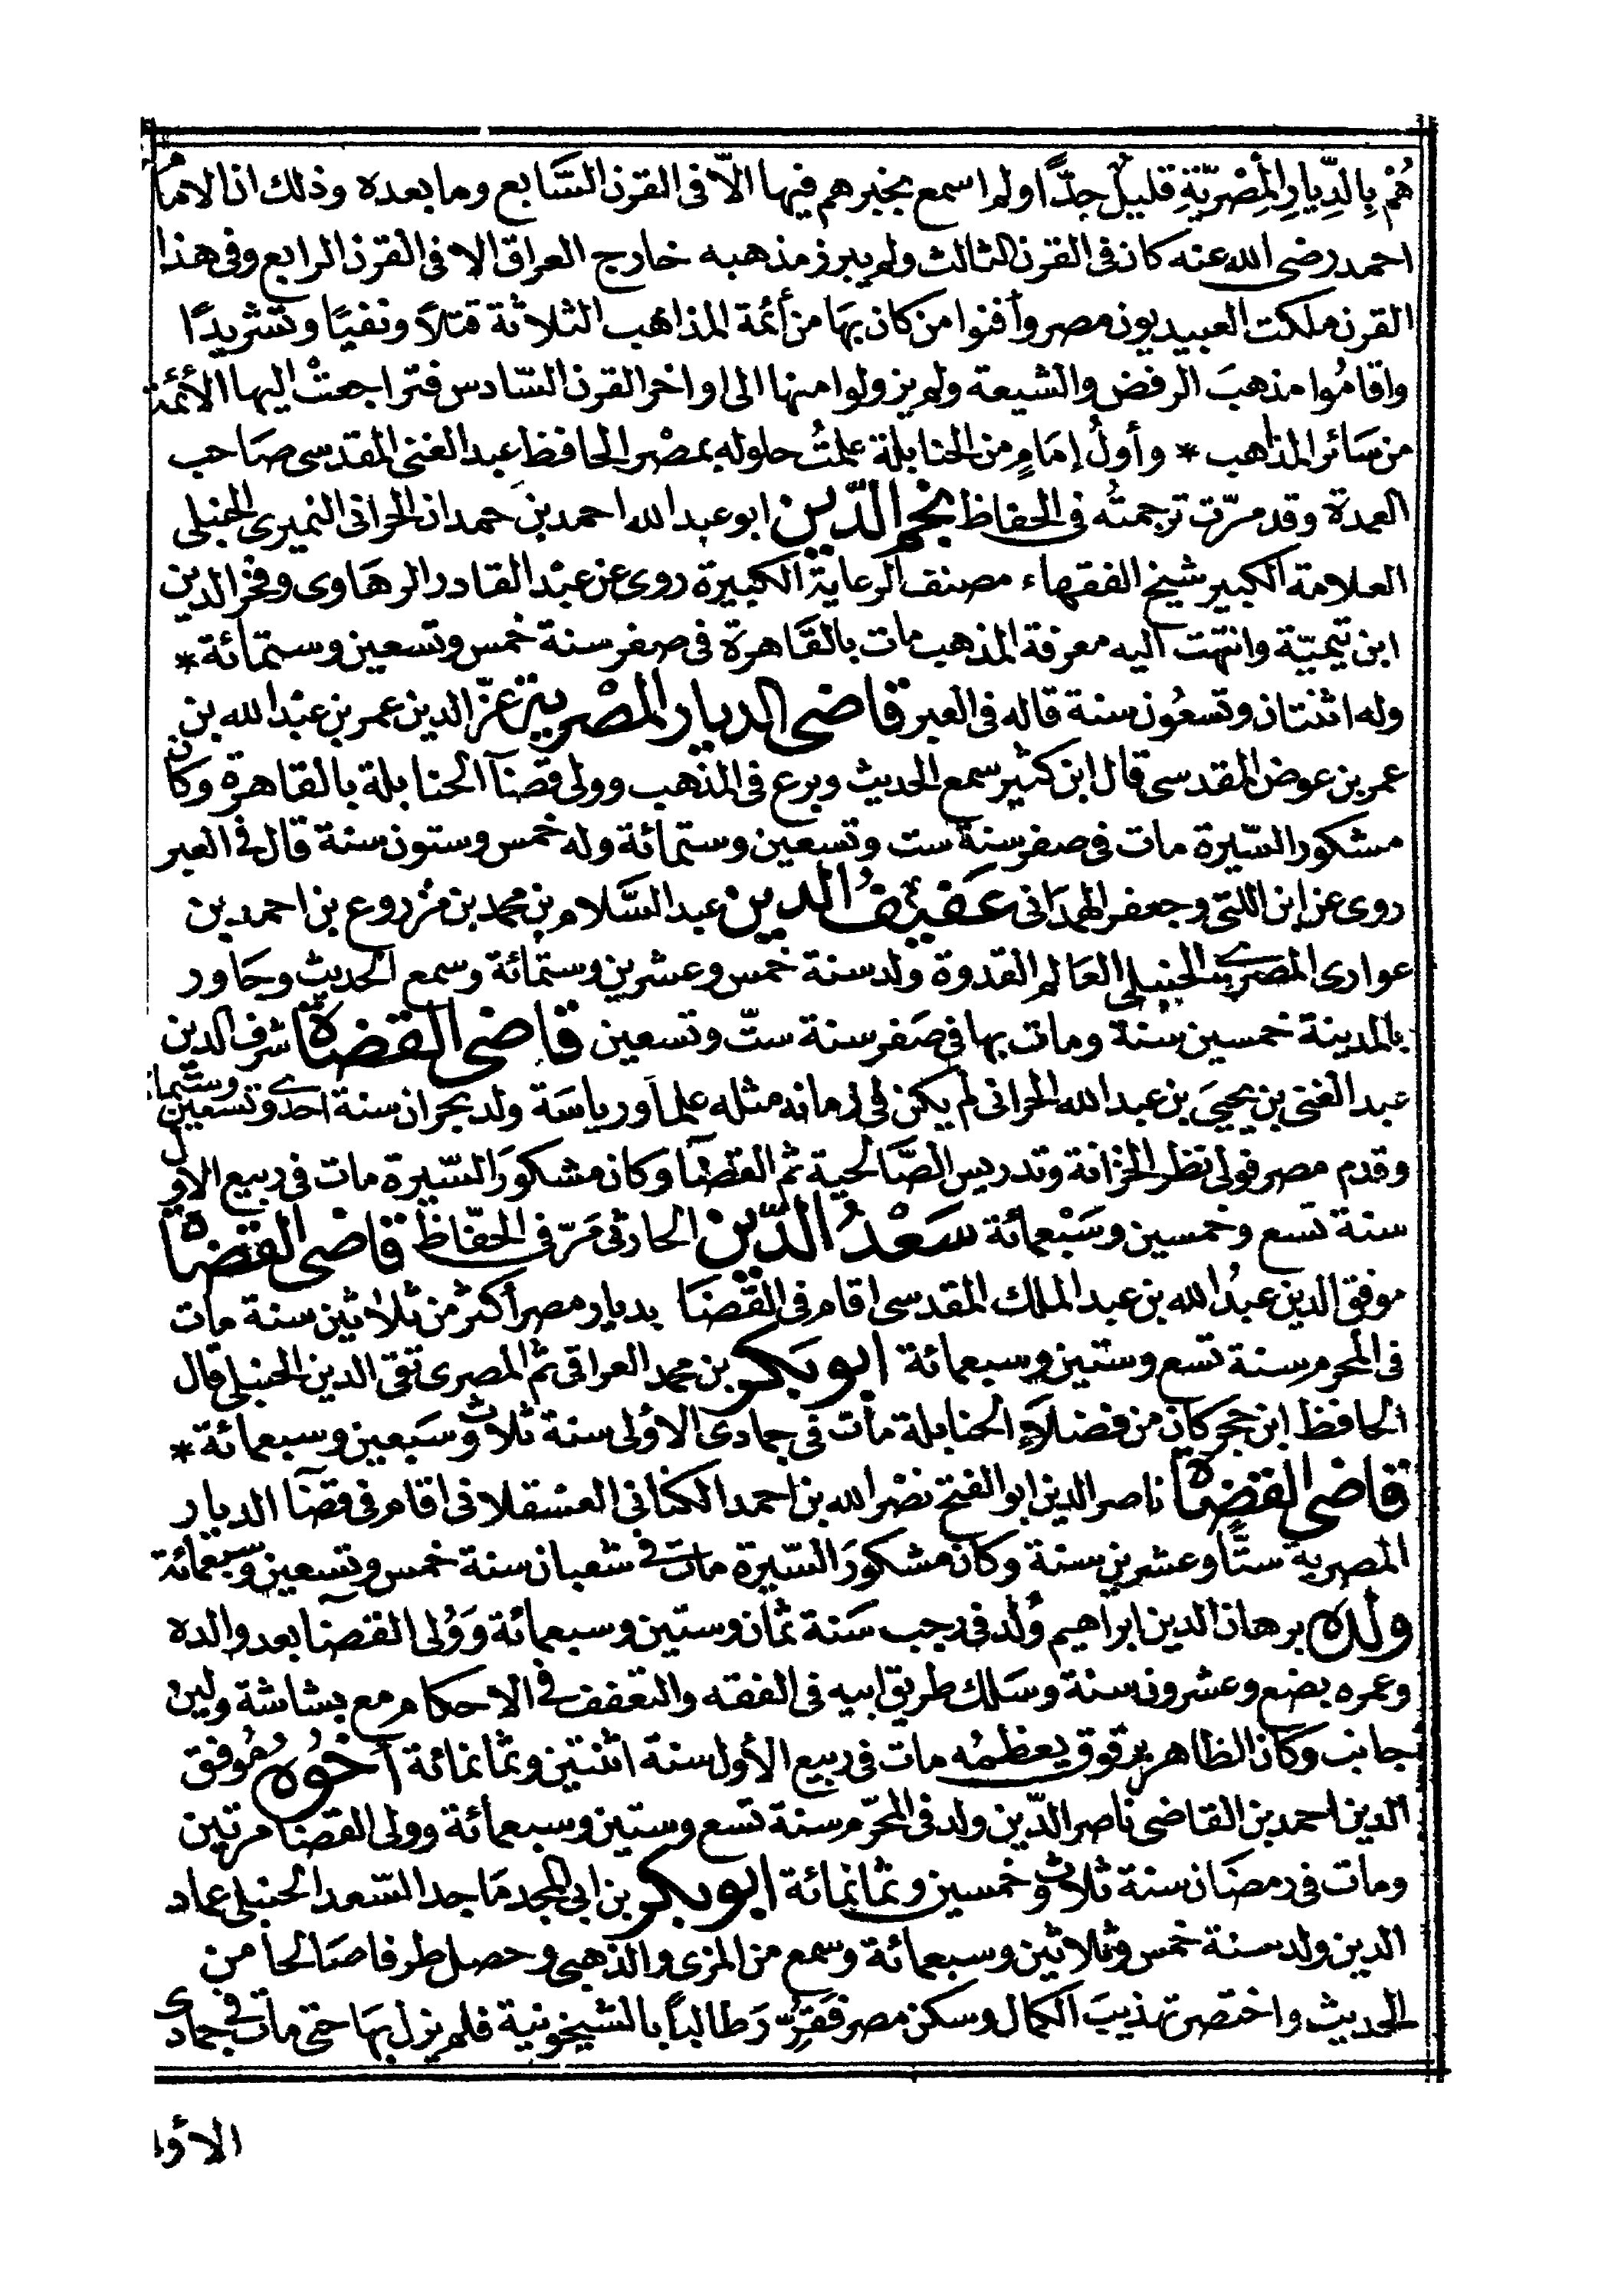 هُمْ بِالدِّيارِ المِصْرِيّةِ قليلٌ جدًّا ولم اسمع بخبرهم فيها الّا فى القرن السَّابع وما بعده وذلك ان الامام
احمد رضى الله عنه كان فى القرن الثالث ولم يبرز مذهبه خارج العراق الا فى القرن الرابع وفى هذا
القرن ملكت العبيديون مصر وأفنوا من كان بهَا من أئمة المذاهب الثلاثة قتلاً ونفيًا وتشريدًا
واقامُوا مذهبَ الرفض والشيعة ولم يزولوا منها الى اواخر القرن السّادس فتراجعتْ اليها الأئمة
من سَائر المذاهب * وأولُ إمَامٍ من الحنابلة علمتُ حلوله بمصْر الحافظ عبد الغنى المقدسى صَاحب
العمدة وقد مرّت ترجمتُه فى الحفاظ نجم الدّين ابو عبد الله احمد بن حمدان الحرانى النميرى الحنبلى
العلامة الكبير شيخ الفقهاء مصنف الرعاية الكبيرة روى عن عبْد القادر الرهَاوى وفخر الدين
ابن تيميّة وانتهت اليه معرفة المذهب مات بالقَاهرة فى صفر سنة خمس وتسعين وستمائة *
وله اثنتان وتسعُون سنة قاله فى العبر قاضى الديار المصْرية عزّ الدين عمر بن عبْد الله بن
عمر بن عوض المقدسى قال ابن كثير سمع الحديث وبرع فى المذهب وولى قضآ الحنابلة بالقاهرة وكان
مشكور السّيرة مات فى صفر سنة ست وتسعين وستمائة وله خمس وستون سنة قال فى العبر
روى عن ابن اللتى وجعفر الهمدَانى عَفيفُ الدين عبد السَّلام بن محمد بن مزروع بن احمد بن
عوارى المصرى الحنبلى العَالم القدوة ولد سنة خمس وعشرين وستمائة وسمع الحديث وجَاور
بالمدينة خمسين سنة ومات بها فى صَفر سنة ستّ وتسعين قاضى القضاة شرف الدين
عبد الغنى بن يحيىَ بن عبد الله الحرانى لم يكن فى زمانه مثله علما ورياسَة ولد بحران سنة احدى وتسعين وستمائة
وقدم مصر فولى نظر الخزانة وتدريس الصَّالحية ثم القضآ وكان مشكورَ السّيرة مات فى ربيع الاول
سنة تسع وخمسين وسَبْعمائة سَعْدُ الدّين الحارثى مَرّ فى الحفّاظ قاضى القضاة
موفق الدين عبدُ الله بن عبد الملك المقدسى اقام فى القَضَا بديار مصر أكثر من ثلاثين سنة مات
فى المحرم سنة تسع وستين وسبعمائة ابو بكر بن محمد العراقى ثم المصرى تقى الدين الحنبلى قال
الحافظ ابن حجر كان من فضلاَءِ الحنابلة مات فى جمادى الاوُلى سنة ثلاث وسَبعين وسبعمائة *
قاضى القضاة ناصر الدين ابو الفتح نصْر الله بن احمد الكنانى العسقلانى اقام فى قضآ الديار
المصرية ستًّا وعشرين سنة وكان مشكورَ السّيرة مات فى شعبان سنة خمس وتسعين وسبعمائة
ولده برهان الدين ابراهيم وُلد فى رجب سَنة ثمان وستين وسبعمائة وَوُلى القضآ بعد والده
وعمره بضع وعشرون سنة وسَلك طريق ابيه فى الفقه والتعفف فى الاحكام مع بشاشة ولين
جانب وكان الظاهر برقوق يعظمُه مات فى ربيع الأول سنة اثنتين وثمانمائة أخُوُه مُوفق
الدين احمد بن القاضى ناصر الدّين ولد فى المحرّم سنة تسع وستين وسبعمائة وولى القضا مرتين
ومات فى رمضَان سنة ثلاث وخمسين وثمانمائة ابو بكر بن ابى المجد مَاجد السّعد الحنبلى عماد
الدين ولد سنة خمس وثلاثين وسبعمائة وسمع من المزى والذهبى وحصل طرفا صَالحا من
الحديث واختصر تهذيبَ الكمال وسكن مصر فقرّر طالبا بالشيخونية فلم يزل بهَا حتى مات فى جمادى
الاول